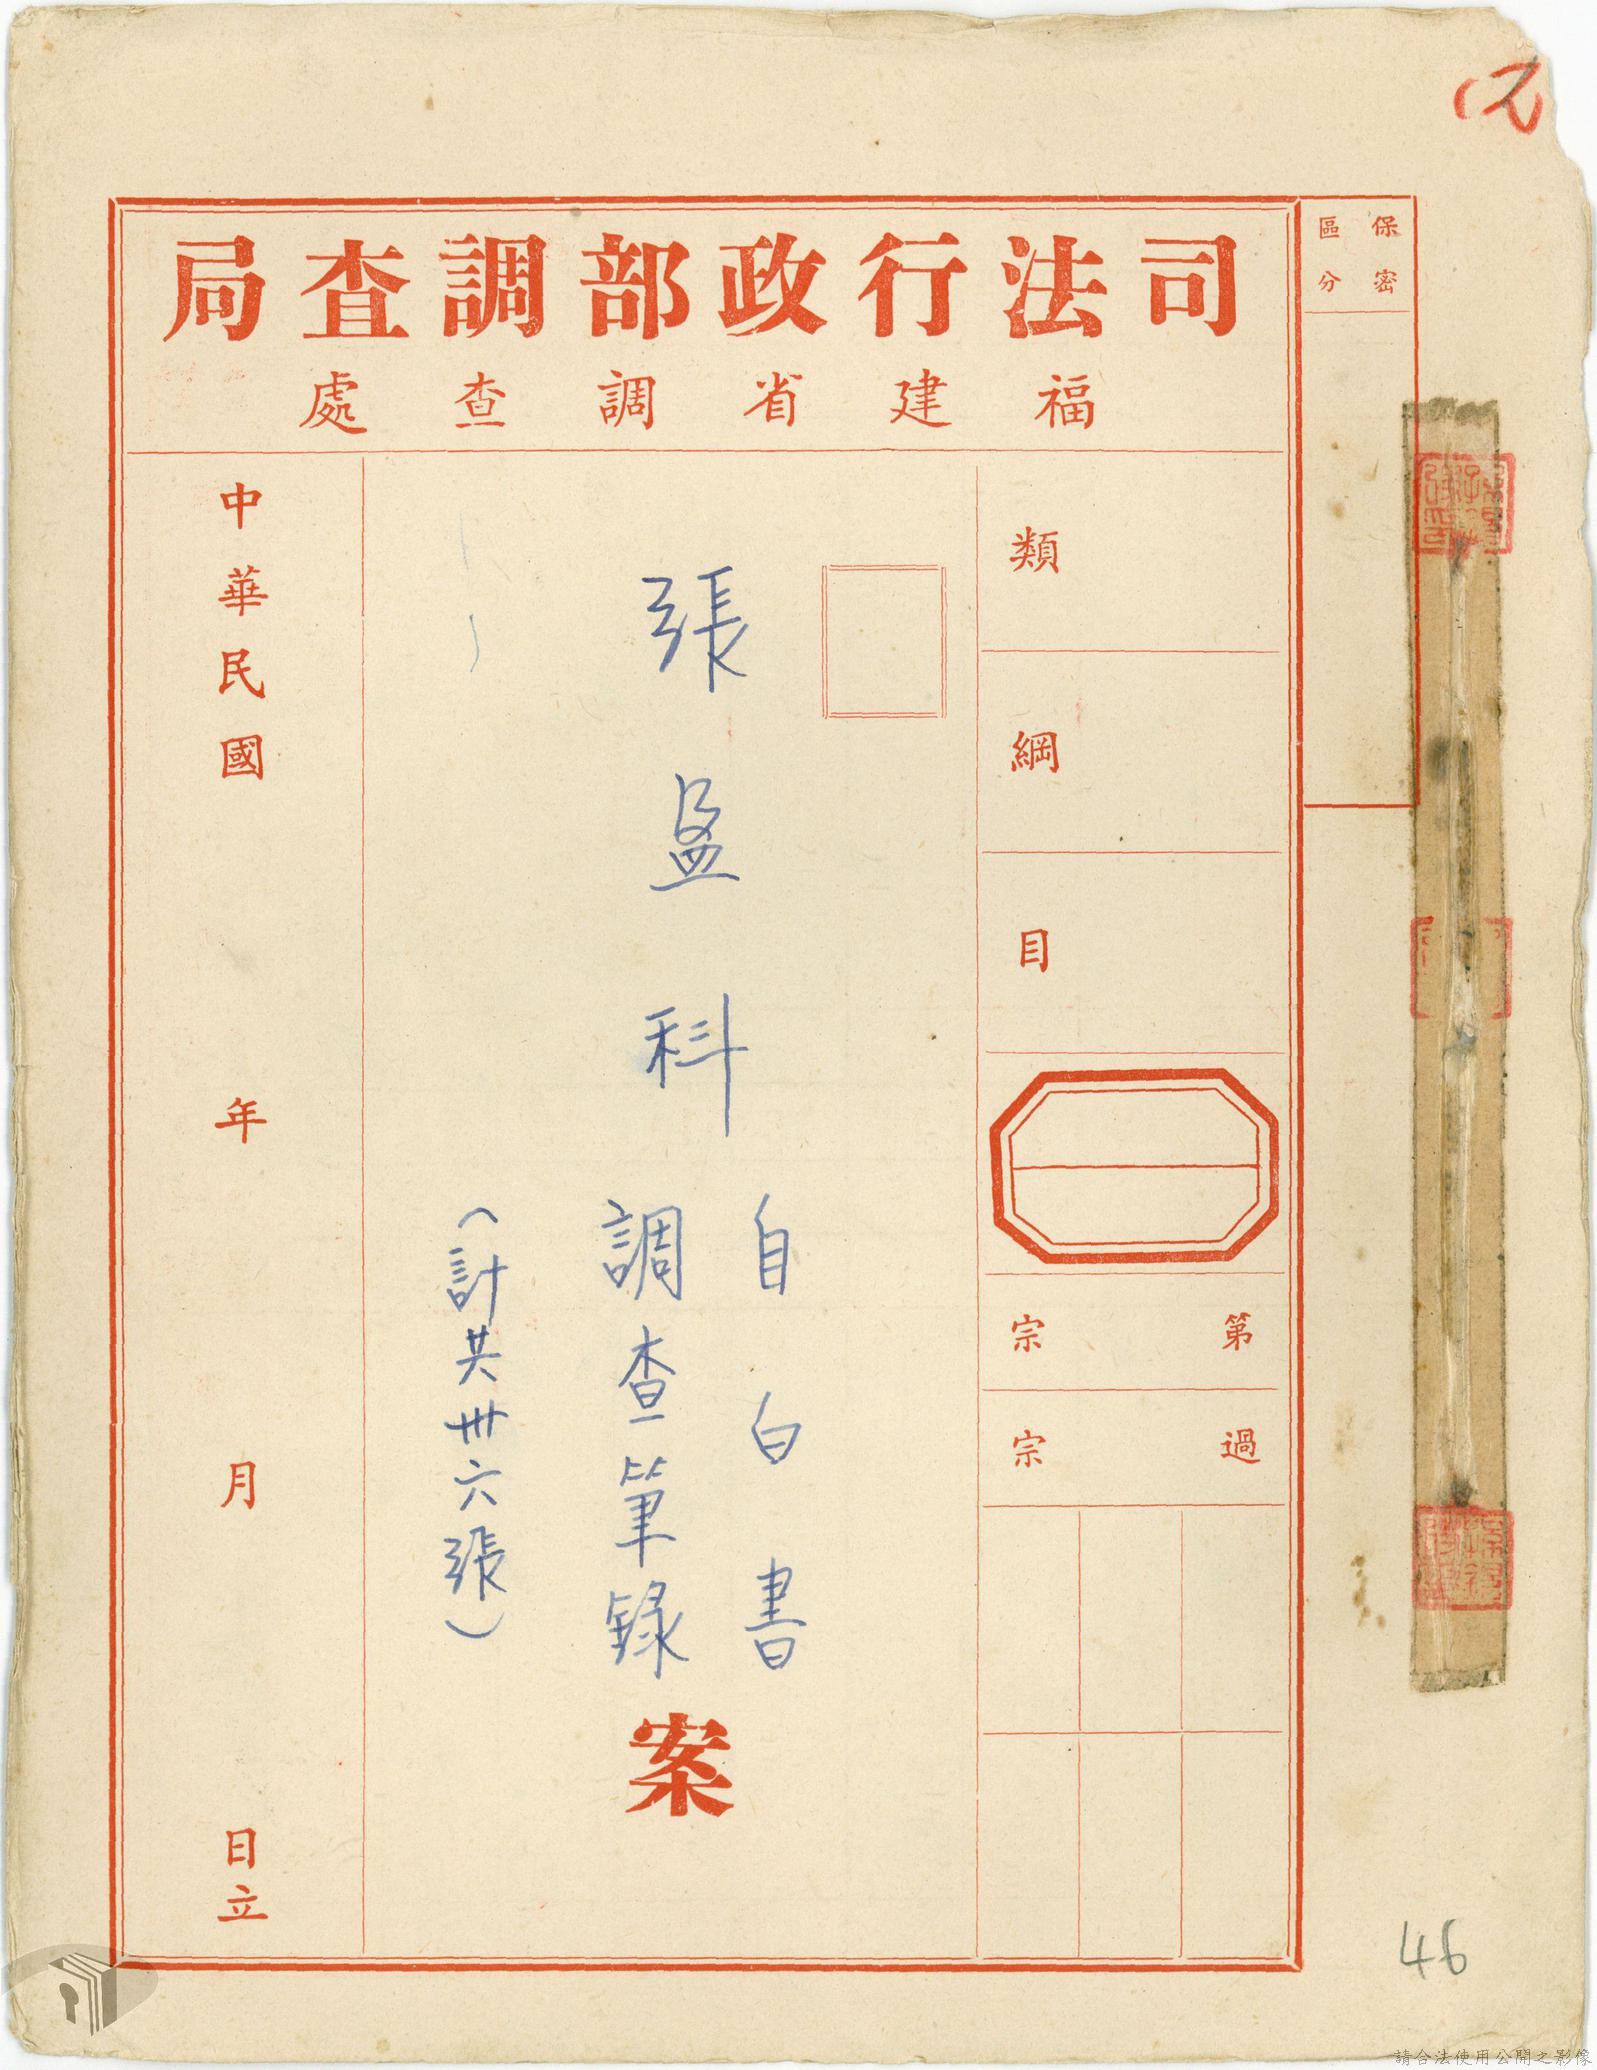 司法行政部調查局
福建省調查處
保密
區分
類
綱
目
第宗
過宗
張盈科
自白書
調查筆錄
案
（計共卅六張）
中華民國年月日立
46
請合法使用公開之影像